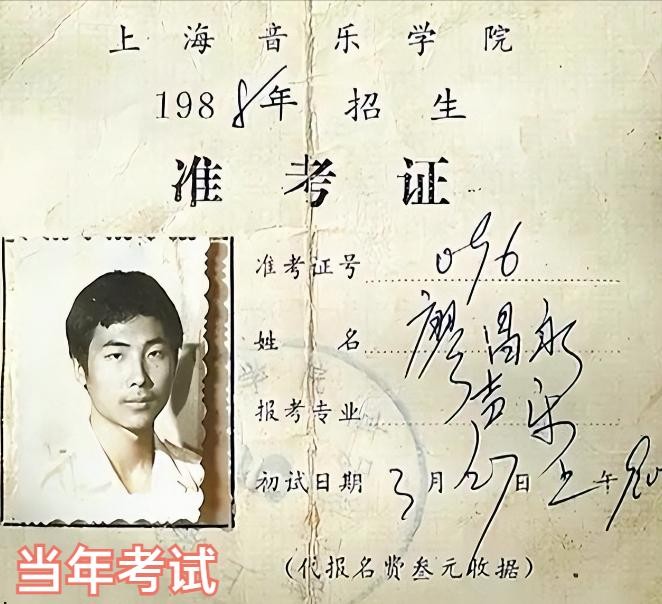 上海音乐学院
1988年招生
准考证
准考证号 096
姓名 廖昌永
报考专业 声乐
初试日期 3月27日上午
(代报名费叁元收据)
当年考试